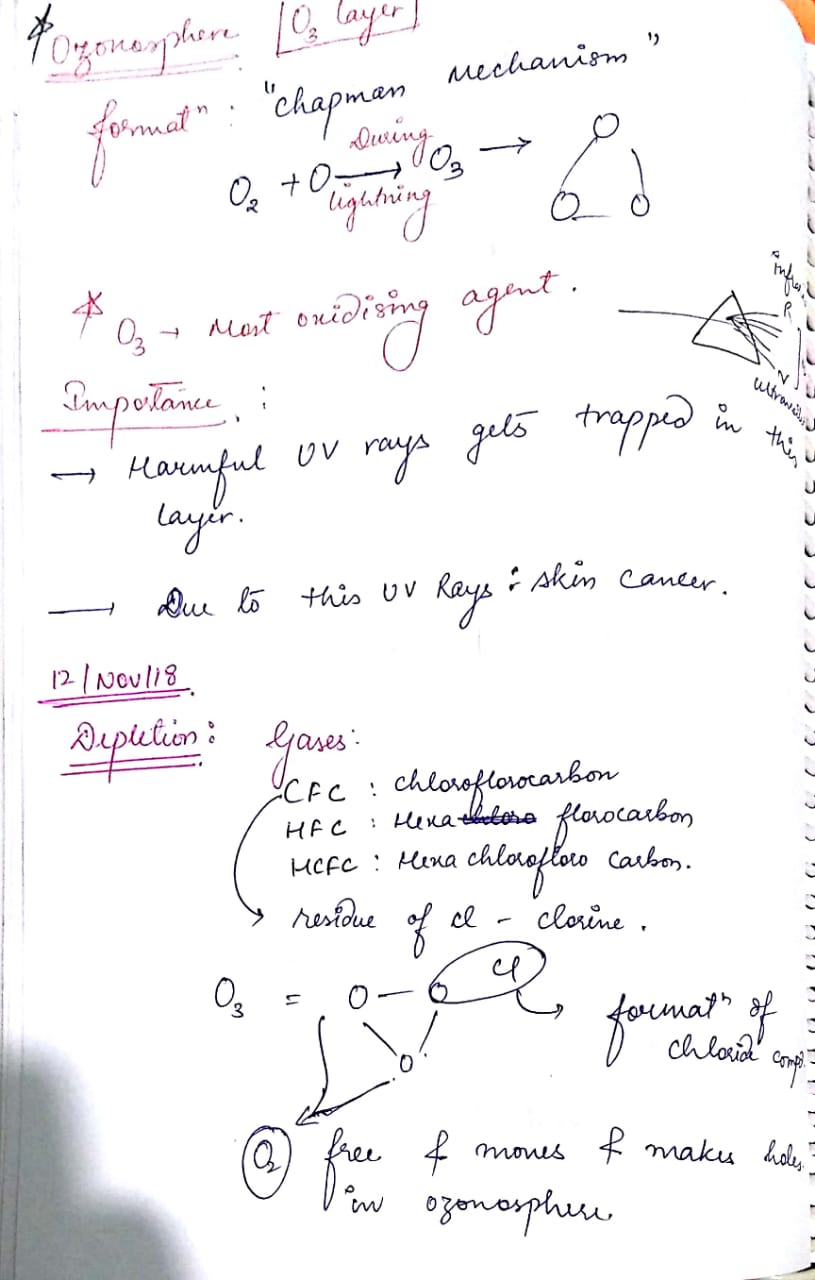 * Ozonosphere [O3 layer]
formatn : "chapman Mechanism"
During
O2 + O → O3 →
lightning
* O3 → Most oxidising agent.
R
V
Importance :
→ Harmful UV rays gets trapped in this
layer.
→ Due to this UV Rays : skin cancer.
12/Nov/18.
Depletion : Gases:
CFC : chloroflorocarbon
HFC : Hexa chloro florocarbon
HCFC : Hexa chlorofloro carbon.
residue of cl - clorine.
O3 = O - O Cl
O
formatn of
chloride comp.
O2 free & moves & makes holes
in ozonosphere.